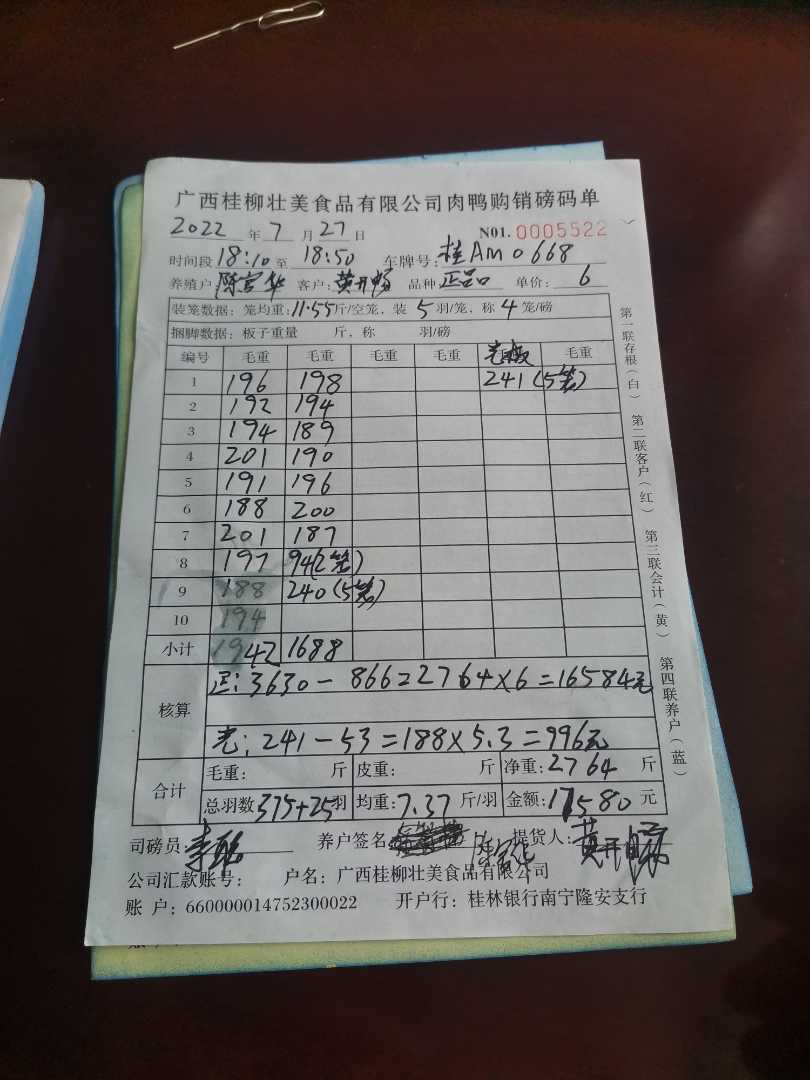 广西桂柳壮美食品有限公司肉鸭购销磅码单
2022 年 7 月 27 日 N01. 0005522
时间段 18:10 至 18:50 车牌号: 桂AM0668
养殖户 陈富华 客户: 黄开畅 品种 正品 单价: 6
装笼数据: 笼均重: 11.55 斤/空笼, 装 5 羽/笼, 称 4 笼/磅
捆脚数据: 板子重量 斤, 称 羽/磅
编号 毛重 毛重 毛重 毛重 光板 毛重
1 196 198 241 (5笼)
2 192 194
3 194 189
4 201 190
5 191 196
6 188 200
7 201 187
8 197 94(2笼)
9 188 240(5笼)
10 194
小计 1942 1688
核算
正: 3630 - 866=2764×6=16584元
光: 241-53=188×5.3=996元
合计
毛重: 斤 皮重: 斤 净重: 2764 斤
总羽数 375+25 羽 均重: 7.37 斤/羽 金额: 17580 元
司磅员: 养户签名 提货人: 黄开畅
公司汇款账号: 户名: 广西桂柳壮美食品有限公司
账 户: 660000014752300022 开户行: 桂林银行南宁隆安支行
第一联存根(白) 第二联客户(红) 第三联会计(黄) 第四联养户(蓝)